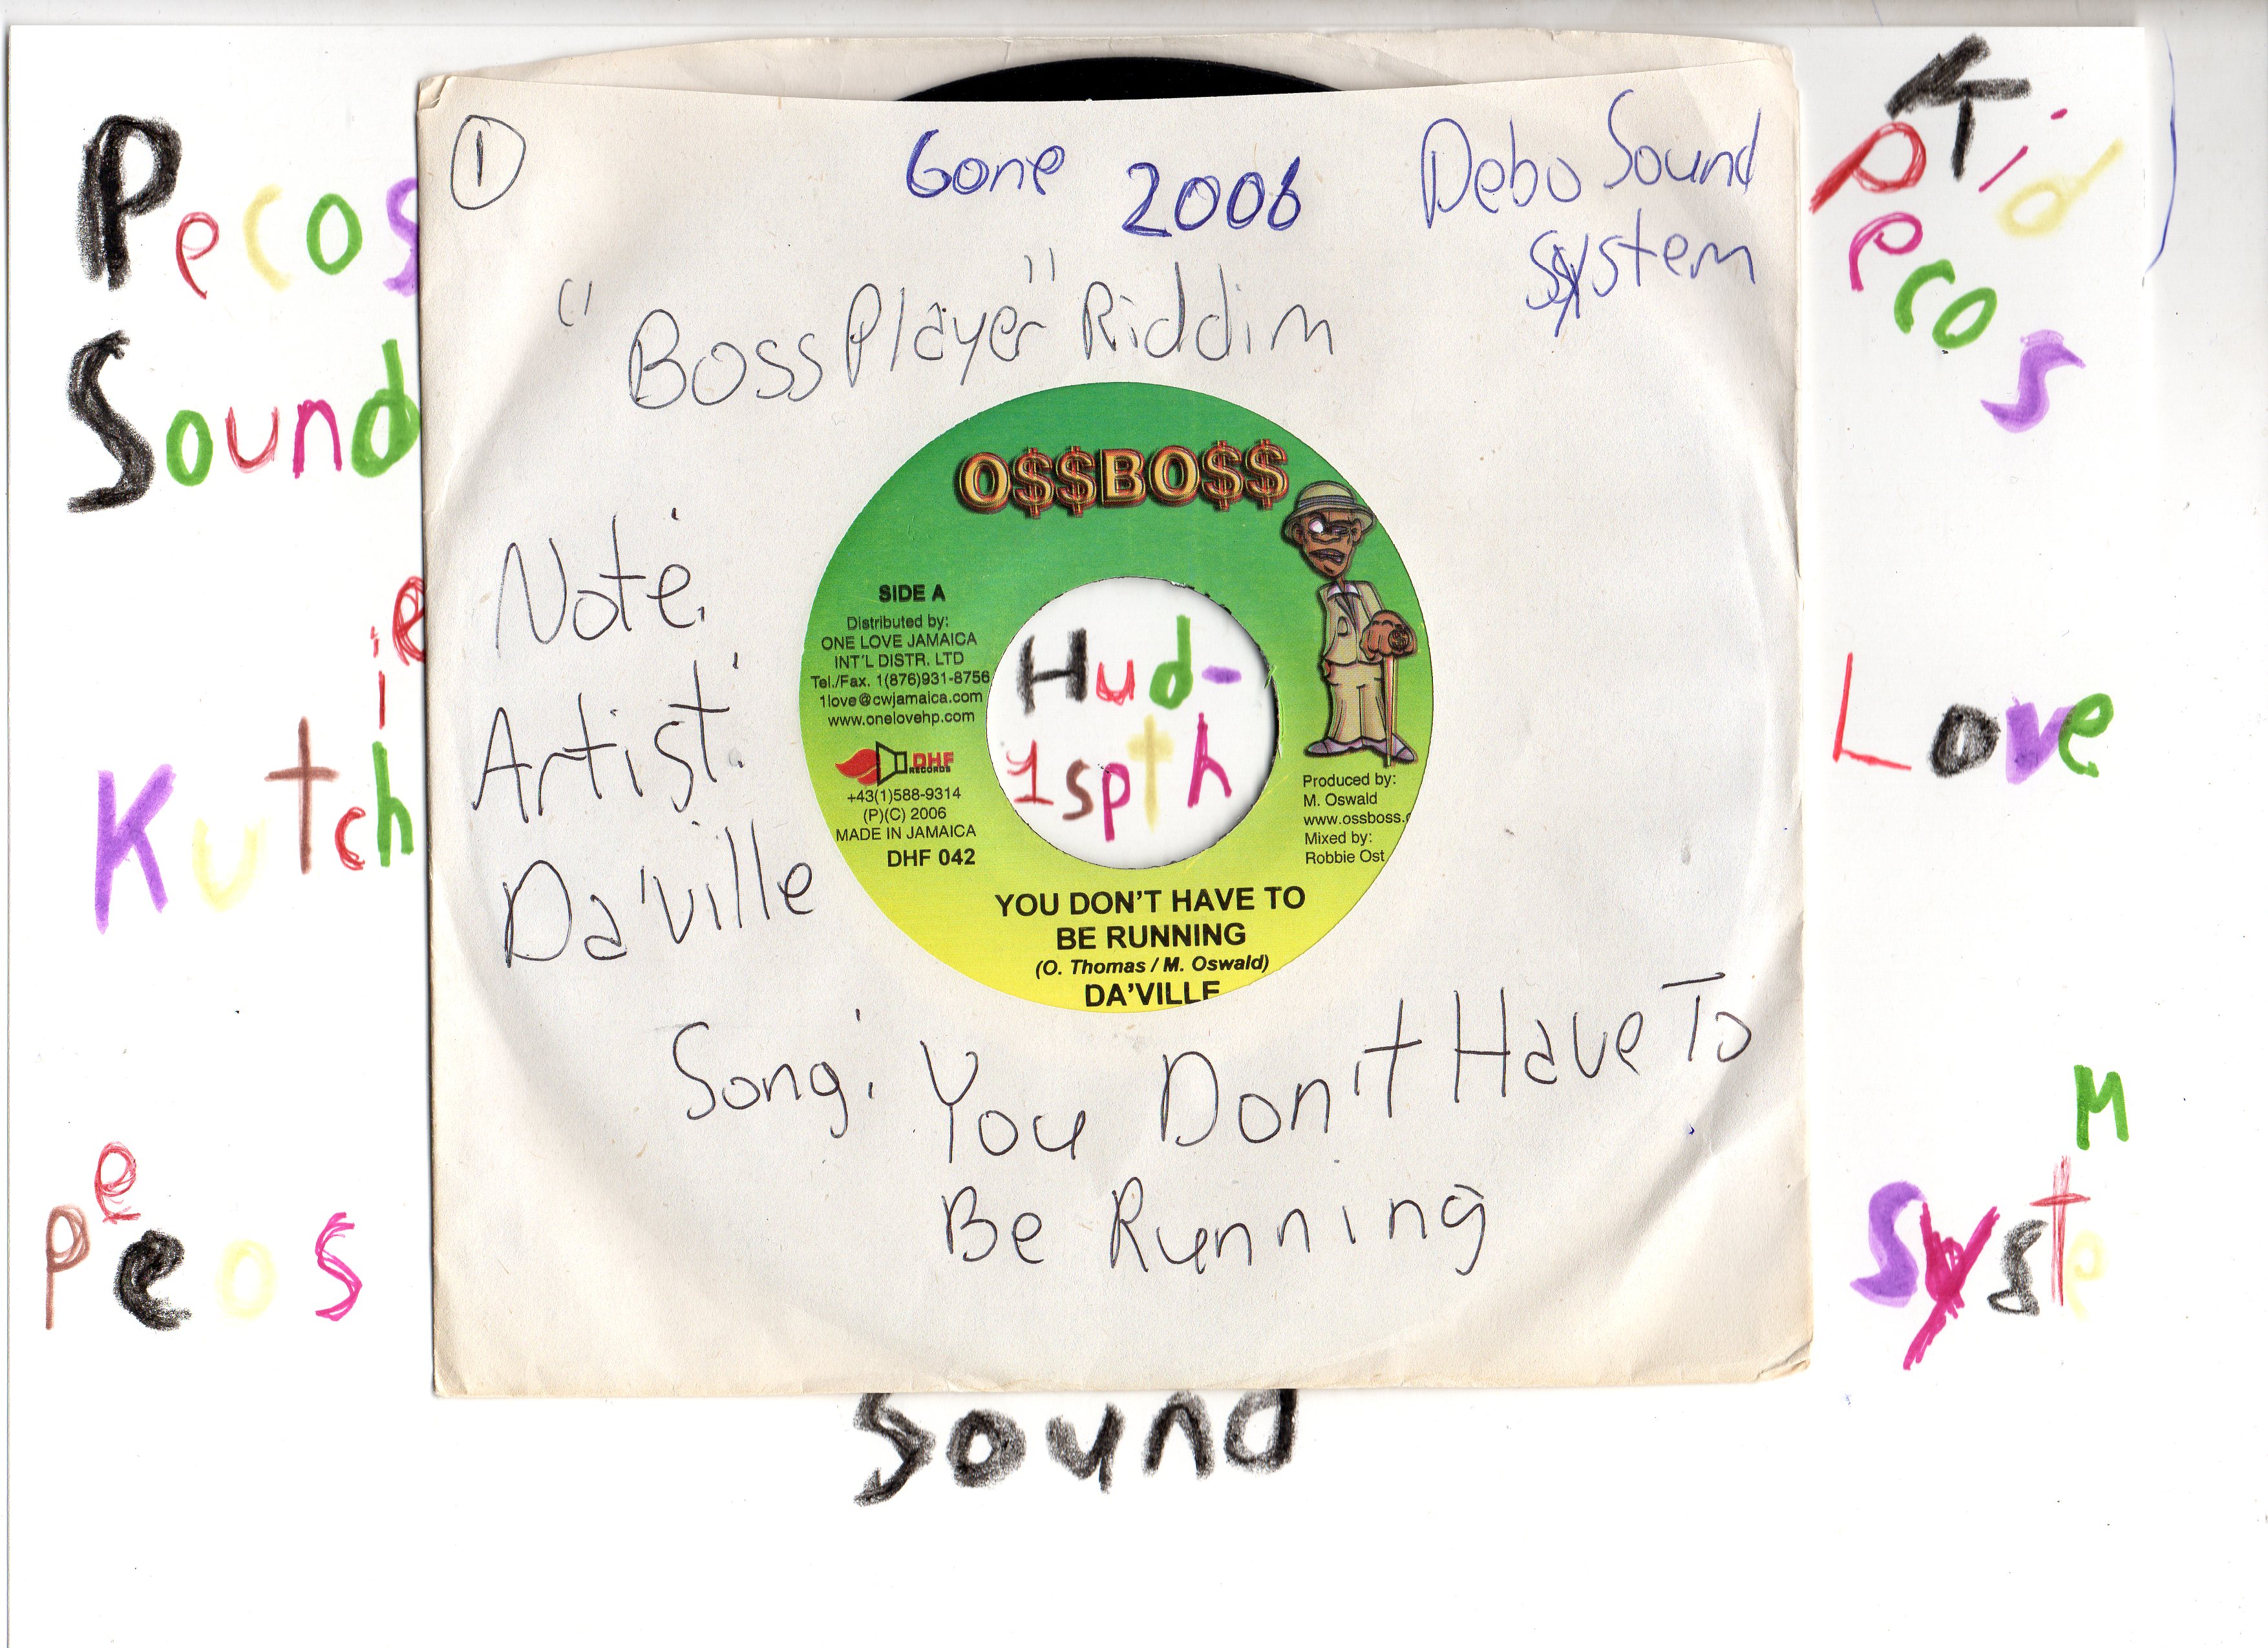 Pecos
Sound
Kutchie
Peeos
1
Gone 2006
Debo Sound
System
"Boss Player" Riddim
Note:
Artist:
Da'ville
O$$BO$$
SIDE A
Distributed by:
ONE LOVE JAMAICA
INT'L DISTR. LTD
Tel./Fax. 1(876)931-8756
1love@cwjamaica.com
www.onelovehp.com
DHF
RECORDS
+43(1)588-9314
(P)(C) 2006
MADE IN JAMAICA
DHF 042
Hud-
1spth
Produced by:
M. Oswald
www.ossboss.
Mixed by:
Robbie Ost
YOU DON'T HAVE TO
BE RUNNING
(O. Thomas / M. Oswald)
DA'VILLE
Song: You Don't Have To
Be Running
Kid
Pecos
Love
SysteM
Sound